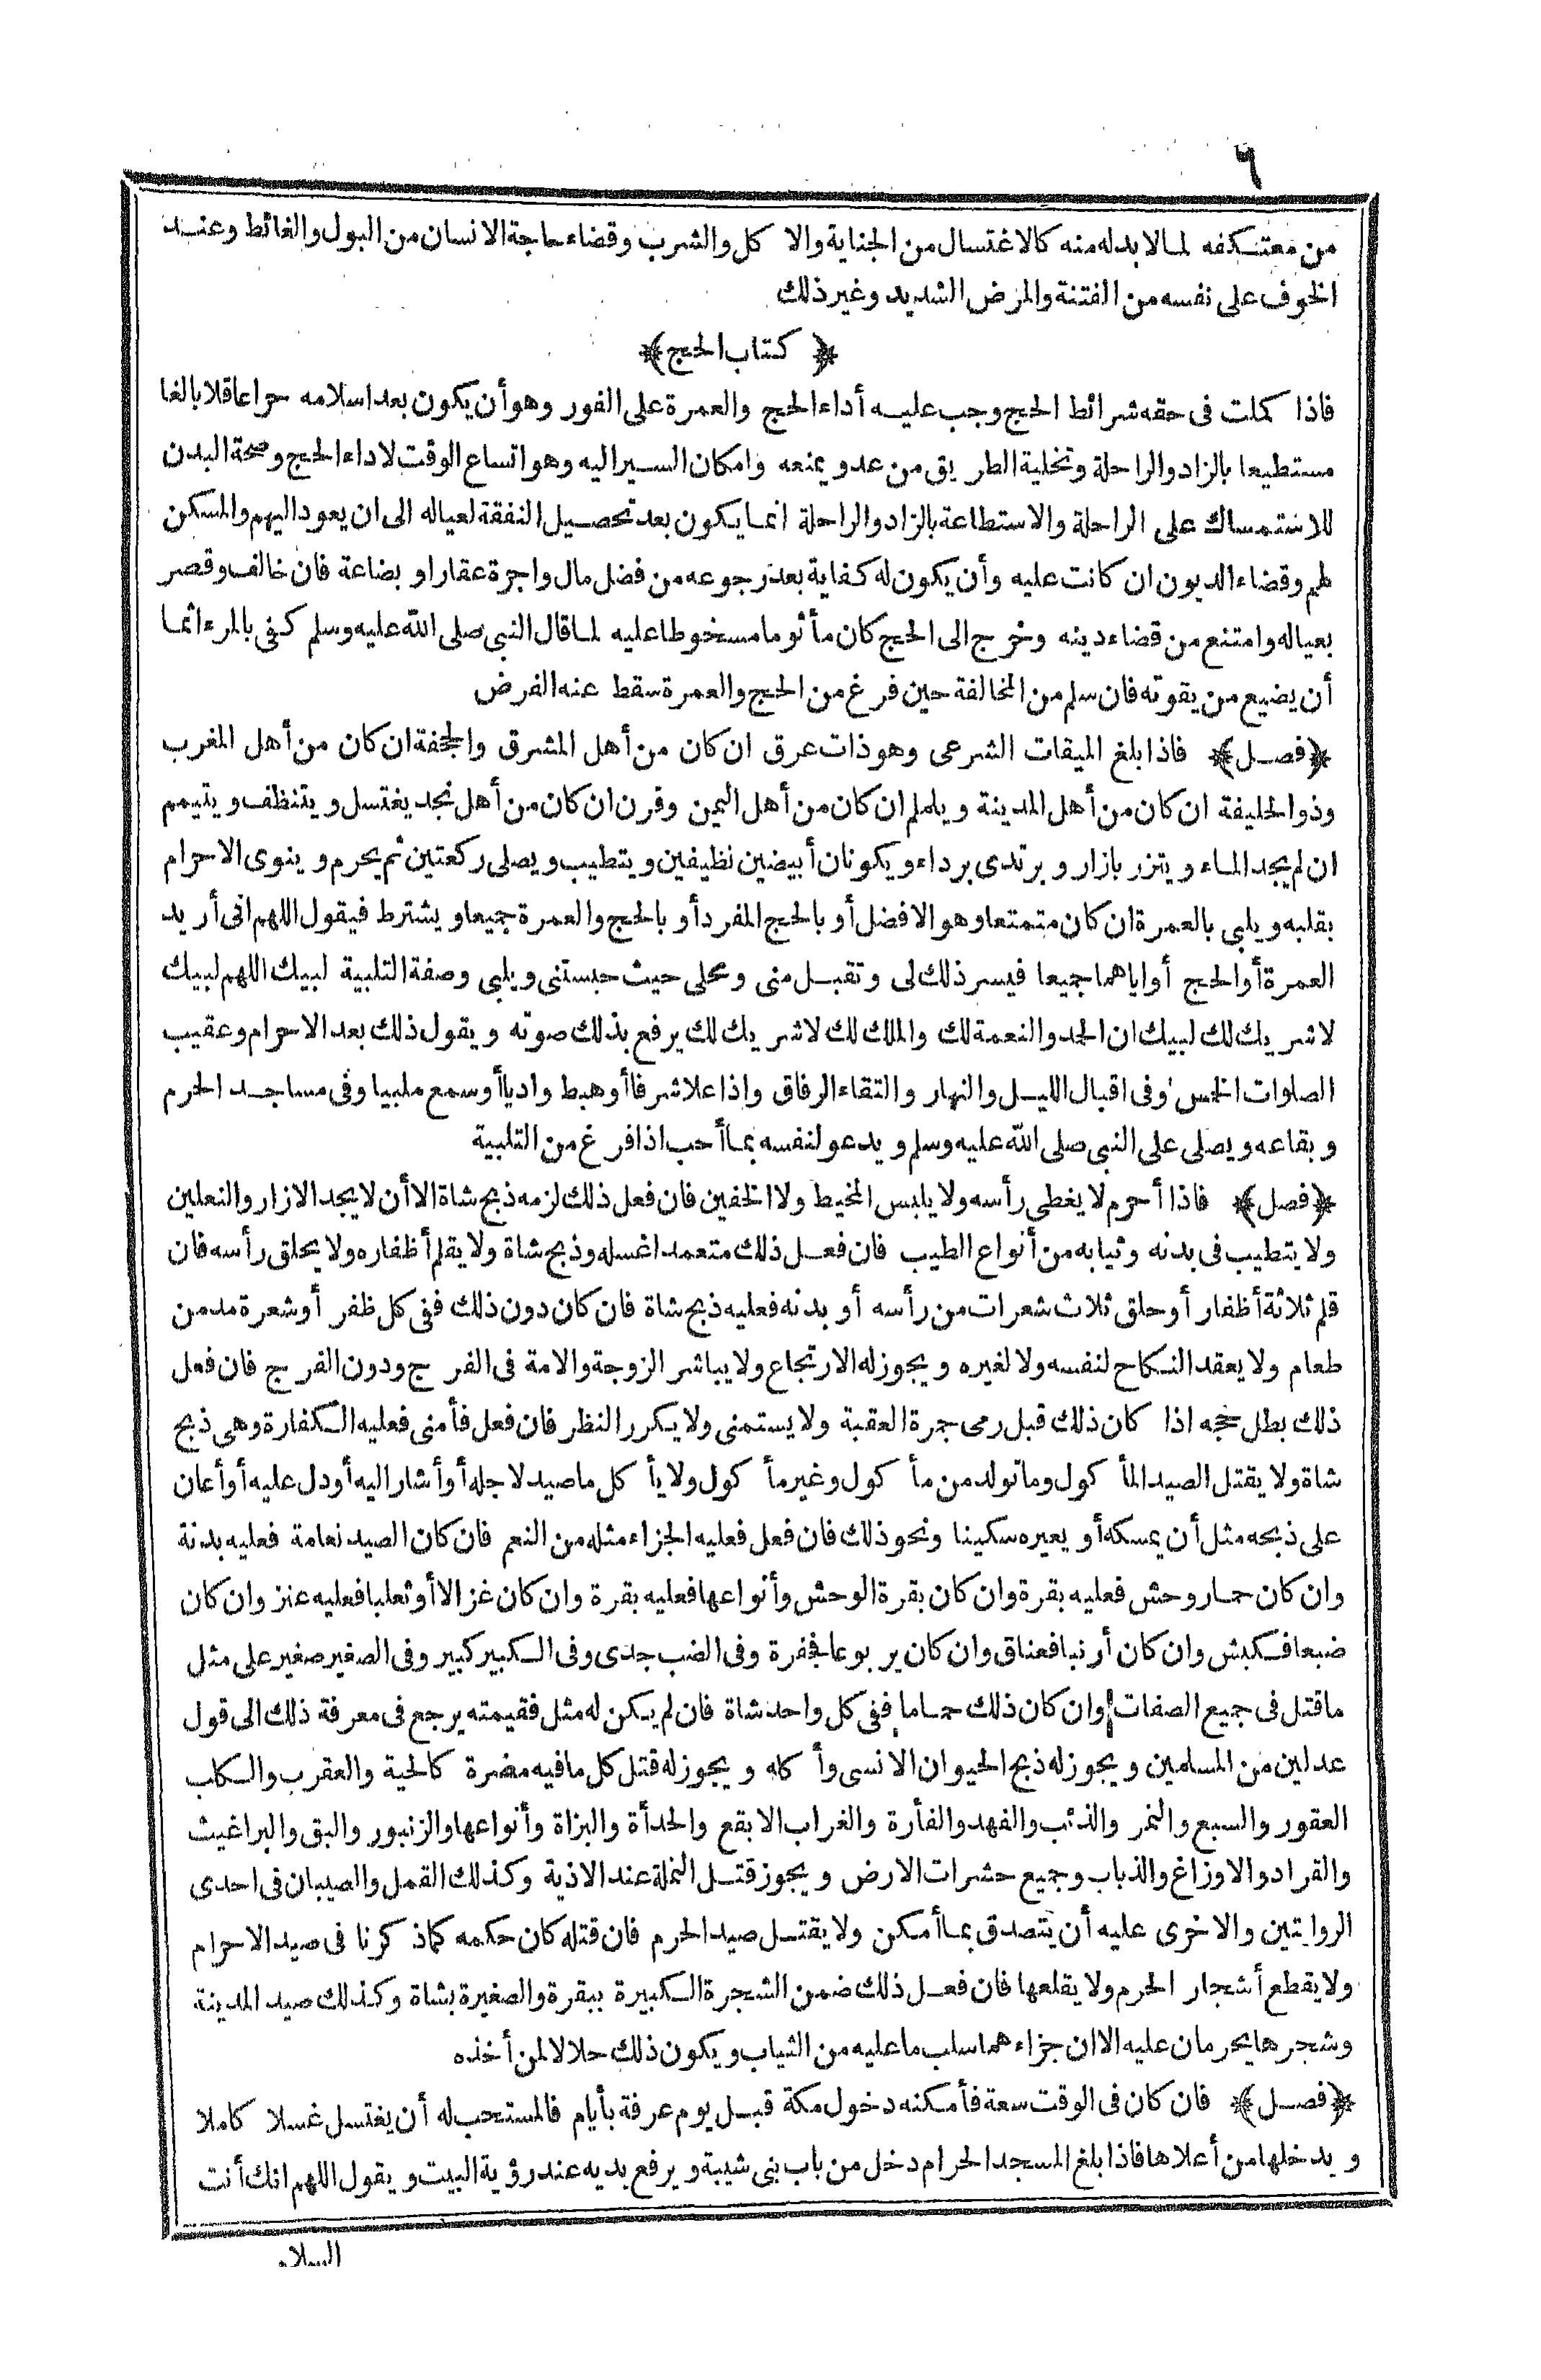 ٦
من معتكفه لما لا بد له منه كالاغتسال من الجنابة والاكل والشرب وقضاء حاجة الانسان من البول والغائط وعند
الخوف على نفسه من الفتنة والمرض الشديد وغير ذلك
﴿كتاب الحج﴾
فاذا كملت فى حقه شرائط الحج وجب عليه أداء الحج والعمرة على الفور وهو أن يكون بعد اسلامه حرا عاقلا بالغا
مستطيعا بالزاد والراحلة وتخلية الطريق من عدو يمنعه وامكان السير اليه وهو اتساع الوقت لاداء الحج وصحة البدن
للاستمساك على الراحلة والاستطاعة بالزاد والراحلة انما يكون بعد تحصيل النفقة لعياله الى ان يعود اليهم والمسكن
لهم وقضاء الديون ان كانت عليه وأن يكون له كفاية بعد رجوعه من فضل مال واجرة عقار او بضاعة فان خالف وقصر
بعياله وامتنع من قضاء دينه وخرج الى الحج كان مأثوما مسخوطا عليه لما قال النبى صلى الله عليه وسلم كفى بالمرء اثما
أن يضيع من يقوته فان سلم من المخالفة حين فرغ من الحج والعمرة سقط عنه الفرض
﴿فصل﴾ فاذا بلغ الميقات الشرعى وهو ذات عرق ان كان من أهل المشرق والجحفة ان كان من أهل المغرب
وذو الحليفة ان كان من أهل المدينة ويلملم ان كان من أهل اليمن وقرن ان كان من أهل نجد يغتسل ويتنظف ويتيمم
ان لم يجد الماء ويتزر بازار ويرتدى برداء ويكونان أبيضين نظيفين ويتطيب ويصلى ركعتين ثم يحرم وينوى الاحرام
بقلبه ويلبى بالعمرة ان كان متمتعا وهو الافضل أو بالحج المفرد أو بالحج والعمرة جميعا ويشترط فيقول اللهم انى أريد
العمرة أو الحج أو اياهما جميعا فيسر ذلك لى وتقبل منى ومحلى حيث حبستنى ويلبى وصفة التلبية لبيك اللهم لبيك
لا شريك لك لبيك ان الحمد والنعمة لك والملك لك لا شريك لك يرفع بذلك صوته ويقول ذلك بعد الاحرام وعقيب
الصلوات الخمس وفى اقبال الليل والنهار والتقاء الرفاق واذا علا شرفا أو هبط واديا أو سمع ملبيا وفى مساجد الحرم
وبقاعه ويصلى على النبى صلى الله عليه وسلم ويدعو لنفسه بما أحب اذا فرغ من التلبية
﴿فصل﴾ فاذا أحرم لا يغطى رأسه ولا يلبس المخيط ولا الخفين فان فعل ذلك لزمه ذبح شاة الا أن لا يجد الازار والنعلين
ولا يتطيب فى بدنه وثيابه من أنواع الطيب فان فعل ذلك متعمدا غسله وذبح شاة ولا يقلم أظفاره ولا يحلق رأسه فان
قلم ثلاثة أظفار أو حلق ثلاث شعرات من رأسه أو بدنه فعليه ذبح شاة فان كان دون ذلك ففى كل ظفر أو شعرة مد من
طعام ولا يعقد النكاح لنفسه ولا لغيره ويجوز له الارتجاع ولا يباشر الزوجة والامة فى الفرج ودون الفرج فان فعل
ذلك بطل حجه اذا كان ذلك قبل رمى جمرة العقبة ولا يستمنى ولا يكرر النظر فان فعل فأمنى فعليه الكفارة وهى ذبح
شاة ولا يقتل الصيد المأكول وما تولد من مأكول وغير مأكول ولا يأكل ما صيد لاجله أو أشار اليه أو دل عليه أو أعان
على ذبحه مثل أن يمسكه أو يعيره سكينا ونحو ذلك فان فعل فعليه الجزاء مثله من النعم فان كان الصيد نعامة فعليه بدنة
وان كان حمار وحش فعليه بقرة وان كان بقرة الوحش وأنواعها فعليه بقرة وان كان غزالا أو ثعلبا فعليه عنز وان كان
ضبعا فكبش وان كان أرنبا فعناق وان كان يربوعا فجفرة وفى الضب جدى وفى الكبير كبير وفى الصغير صغير على مثل
ما قتل فى جميع الصفات وان كان ذلك حماما ففى كل واحد شاة فان لم يكن له مثل فقيمته يرجع فى معرفة ذلك الى قول
عدلين من المسلمين ويجوز له ذبح الحيوان الانسى وأكله ويجوز له قتل كل ما فيه مضرة كالحية والعقرب والكلب
العقور والسبع والنمر والذئب والفهد والفأرة والغراب الابقع والحدأة والبزاة وأنواعها والزنبور والبق والبراغيث
والقراد والاوزاغ والذباب وجميع حشرات الارض ويجوز قتل النملة عند الاذية وكذلك القمل والصيبان فى احدى
الروايتين والاخرى عليه أن يتصدق بما أمكن ولا يقتل صيد الحرم فان قتله كان حكمه كما ذكرنا فى صيد الاحرام
ولا يقطع أشجار الحرم ولا يقلعها فان فعل ذلك ضمن الشجرة الكبيرة ببقرة والصغيرة بشاة وكذلك صيد المدينة
وشجرها يحرمان عليه الا ان جزاءهما سلب ما عليه من الثياب ويكون ذلك حلالا لمن أخذه
﴿فصل﴾ فان كان فى الوقت سعة فأمكنه دخول مكة قبل يوم عرفة بأيام فالمستحب له أن يغتسل غسلا كاملا
ويدخلها من أعلاها فاذا بلغ المسجد الحرام دخل من باب بنى شيبة ويرفع يديه عند رؤية البيت ويقول اللهم انك أنت
السلام